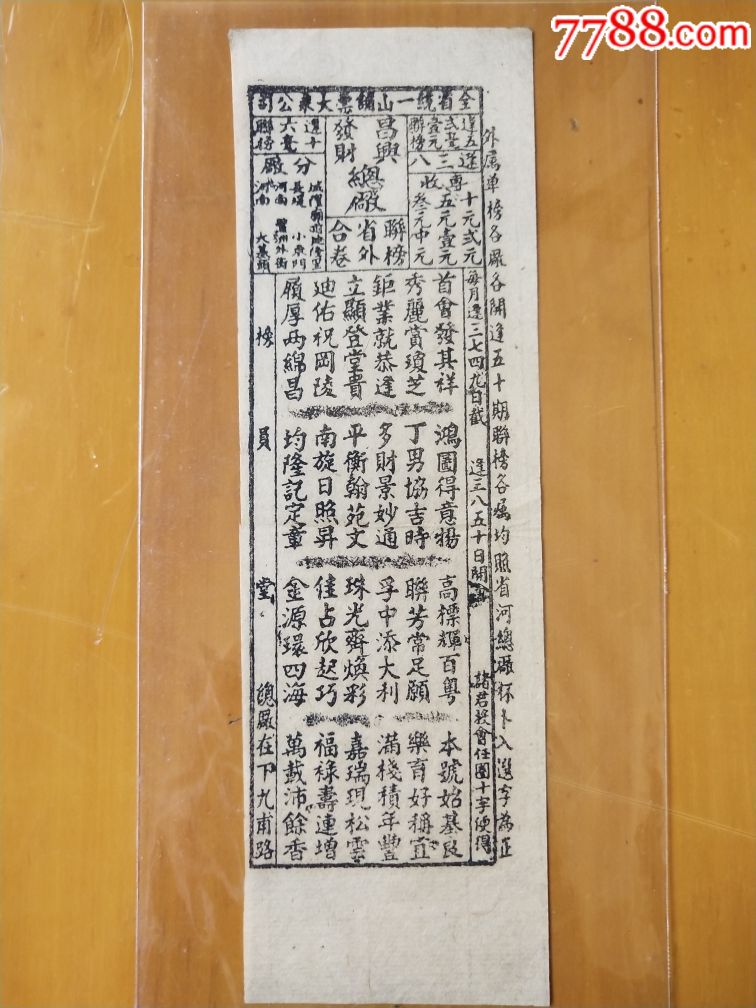 7788.com
全省統一山鋪票大東公司
外属单榜各厰各開逢五十期聯榜各属均照省河總厰杯卜入選字為正
逢五
弍毫
壹元
聯榜
逢三八
專收
十元弍元
五元壹元
叁元中元
昌興
發財
總厰
聯榜
省外
合卷
逢十
六毫
聯榜
分厰
長堤
河南
小東門
大基頭
每月逢三七四九日截
逢三八五十日開
諸君投會任圈十字便得
首會發其祥
秀麗賞瓊芝
鉅業就恭逢
立顯登堂貴
廸佑祝岡陵
履厚再綿昌
鴻圖得意揚
丁男協吉時
多財景妙通
平衡翰苑文
南旋日照昇
均隆記定章
高標輝百粵
聯芳常足願
孚中添大利
珠光齊煥彩
佳占欣起巧
金源環四海
本號始基良
樂育好稱宜
滿棧積年豐
嘉瑞現松雲
福祿壽連增
萬載沛餘香
榜員堂
總厰在下九甫路